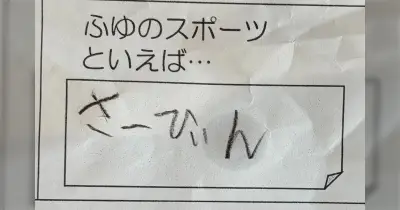 ふゆのスポーツ
といえば…
さーひぃん